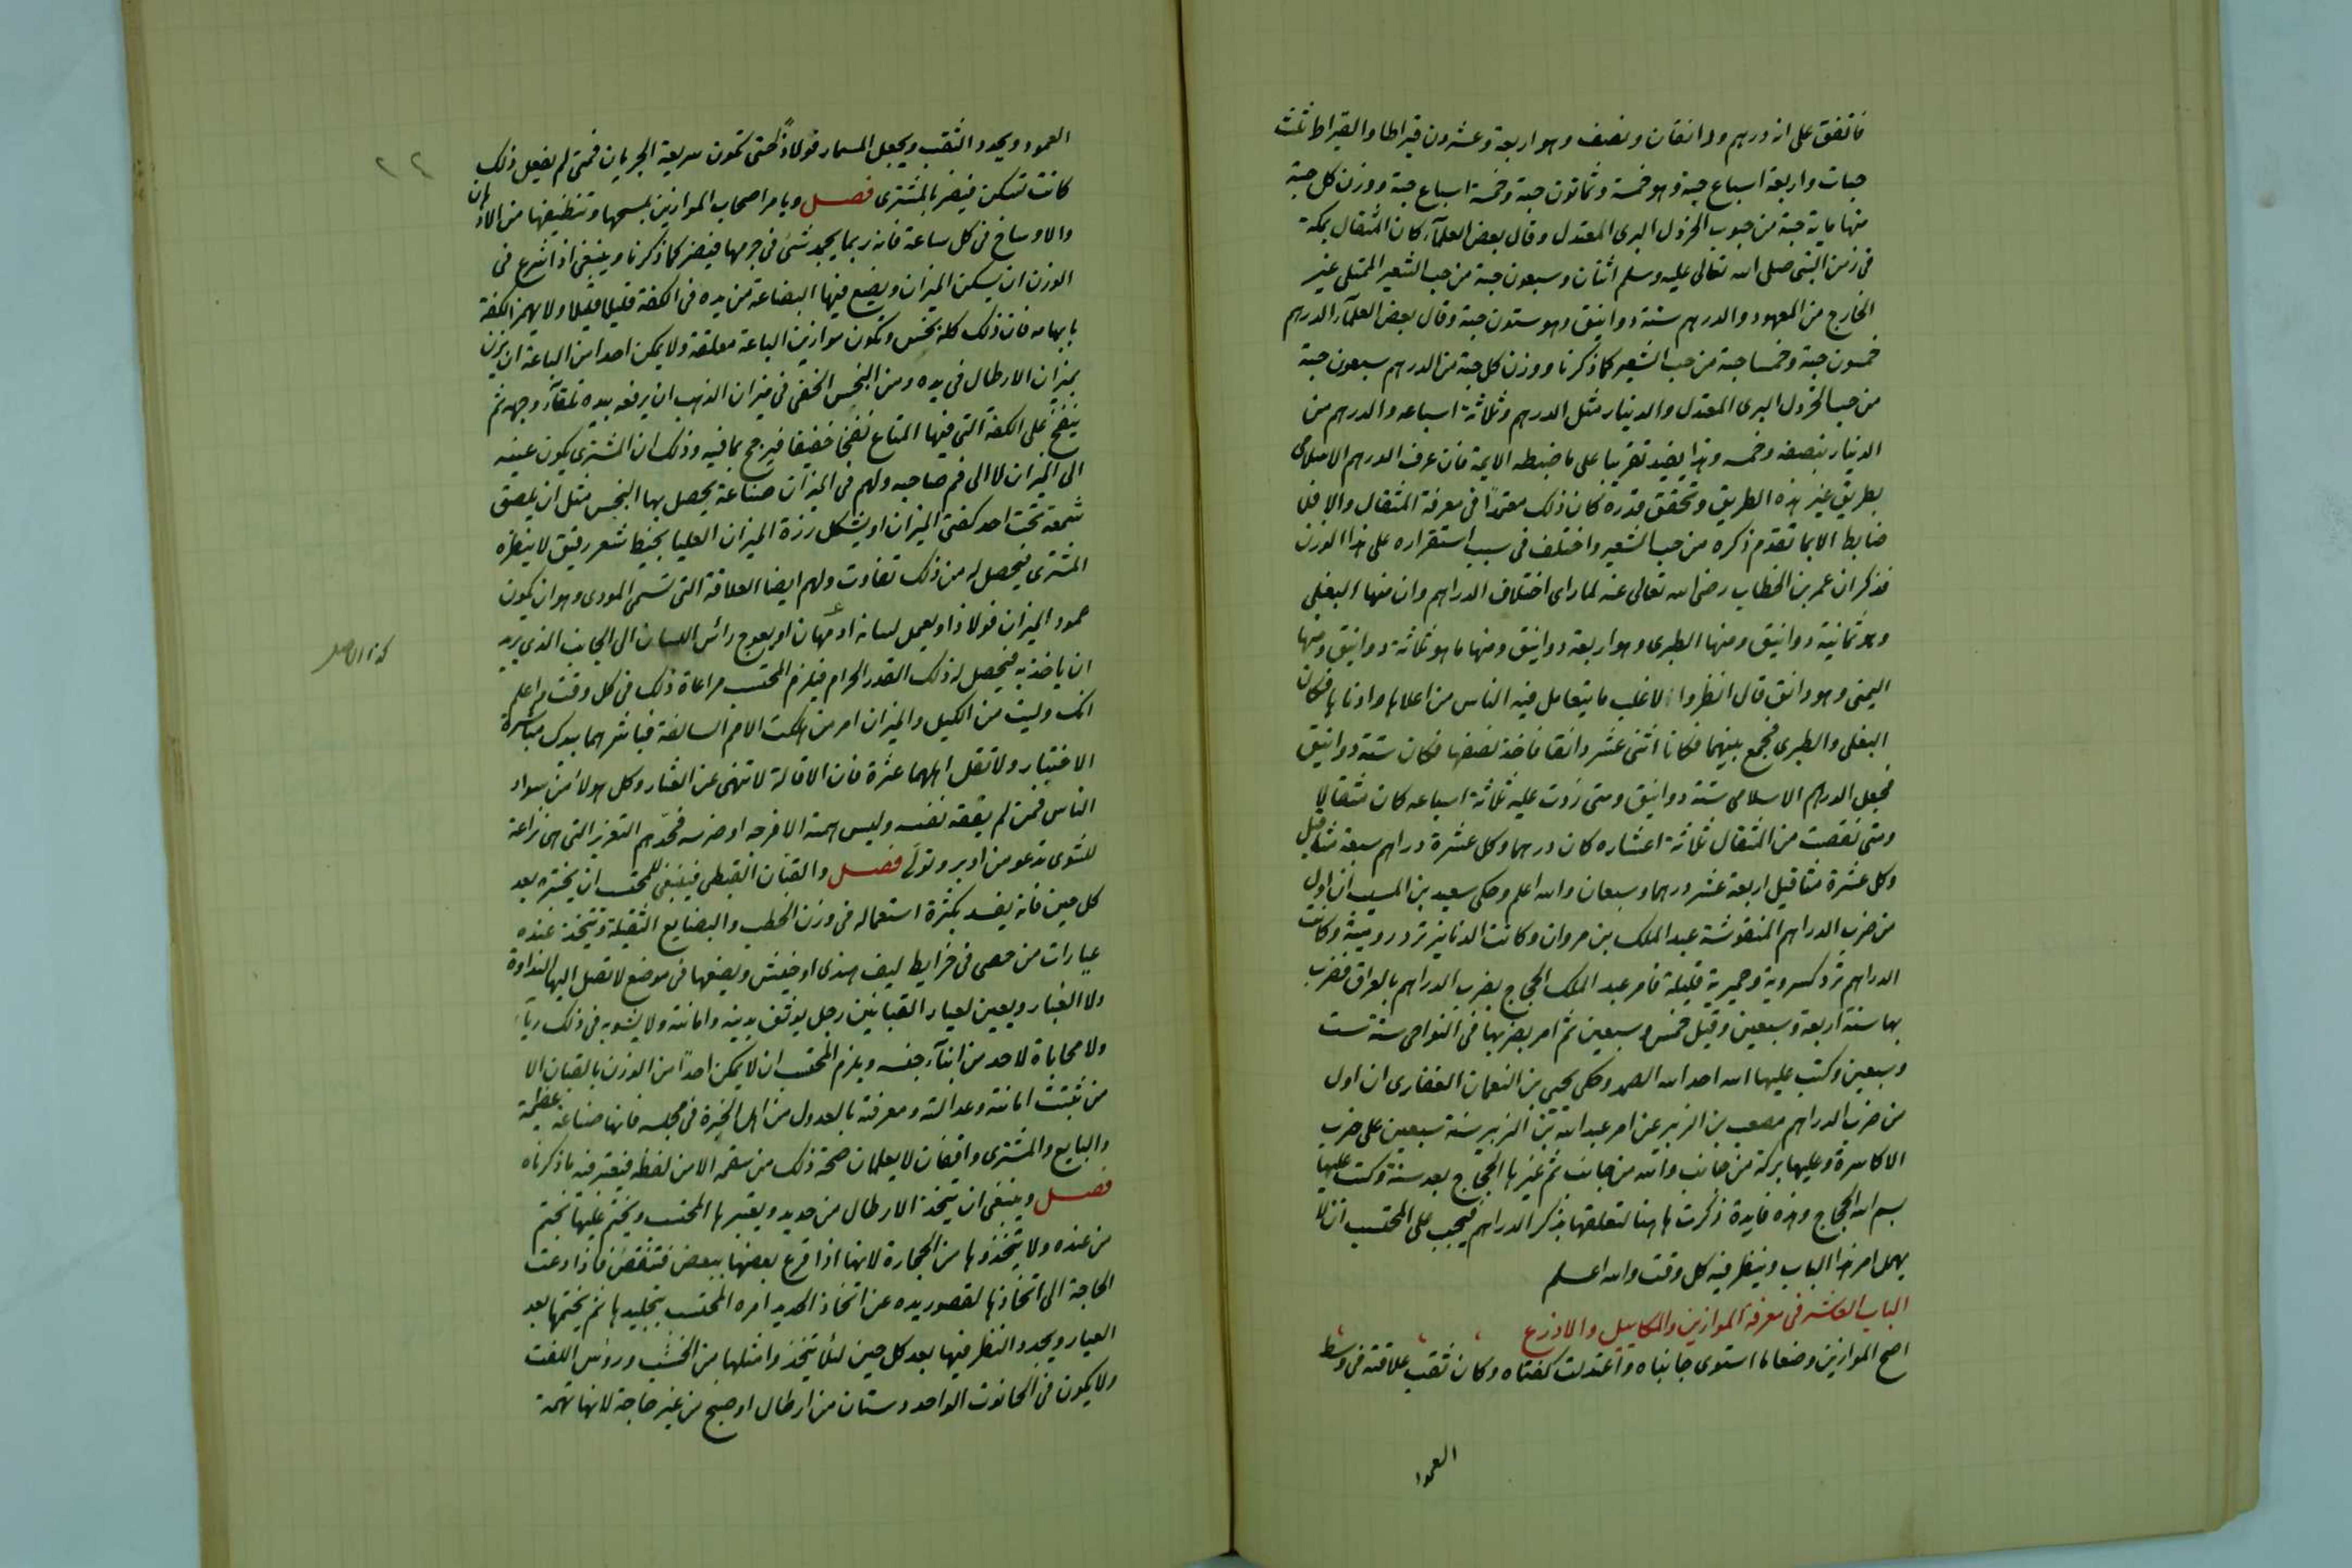 فاتفق على انه درهم ودانقان ونصف وهو اربعة وعشرون قيراطا والقيراط ثلث
حبات واربعة اسباع حبة وهو خمسة وثمانون حبة وخمسة اسباع حبة ووزن كل حبة
منها ماية حبة من حبوب الخردل البرى المعتدل وقال بعض العلمآء كان المثقال بمكة
فى زمن النبى صلى الله تعالى عليه وسلم اثنان وسبعون حبة من حب الشعير الممتلى غير
الخارج من المعهود والدرهم ستة دوانيق وهو ستون حبة وقال بعض العلمآء الدرهم
خمسون حبة وخمسا حبة من حب الشعير كما ذكرنا ووزن كل حبة من الدرهم سبعون حبة
من حب الخردل البرى المعتدل والدينار مثل الدرهم وثلاثة اسباعه والدرهم من
الدينار بنصفه وخمسه وهذا يفيد تقريبا على ما ضبطه الايمة فان عرف الدرهم الاسلامى
بطريق غير هذه الطريق وتحقق قدره كان ذلك معتمدًا فى معرفة المثقال والا فلا
ضابط الا بما تقدم ذكره من حب الشعير واختلف فى سبب استقراره على هذا الوزن
فذكر ان عمر بن الخطاب رضى الله تعالى عنه لما راى اختلاف الدراهم وان منها البغلى
وهو ثمانية دوانيق ومنها الطبرى وهو اربعة دوانيق ومنها ما هو ثلاثة دوانيق ومنها
اليمنى وهو دانق قال انظروا الاغلب ما يتعامل فيه الناس من اعلاها وادناها فكان
البغلى والطبرى فجمع بينهما فكانا اثنى عشر دانقا فاخذ نصفها فكان ستة دوانيق
فجعل الدرهم الاسلامى ستة دوانيق ومتى زدت عليه ثلاثة اسباعه كان مثقالا
ومتى نقصت من المثقال ثلاثة اعشاره كان درهما وكل عشرة دراهم سبعة مثاقيل
وكل عشرة مثاقيل اربعة عشر درهما وسبعان والله اعلم وحكى سعيد بن المسيب ان اول
من ضرب الدراهم المنقوشة عبد الملك بن مروان وكانت الدنانير ترد رومية وكانت
الدراهم ترد كسروية وحميرية قليلة فامر عبد الملك الحجاج بضرب الدراهم بالعراق فضرب
بها سنة اربعة وسبعين وقيل خمس وسبعين ثم امر بضربها فى النواحى سنة ست
وسبعين وكتب عليها الله احد الله الصمد وحكى يحيى بن النعمان الغفارى ان اول
من ضرب الدراهم مصعب بن الزبير عن امر عبد الله بن الزبير سنة سبعين على ضرب
الاكاسرة وعليها بركة من جانب والله من جانب ثم غيرها الحجاج بعد سنة وكتب عليها
بسم الله الحجاج وهذه فايدة ذكرت هاهنا لتعلقها بذكر الدراهم فيجب على المحتسب ان لا
يهمل امر هذا الباب وينظر فيه كل وقت والله اعلم
الباب العاشر فى معرفة الموازين والمكاييل والاذرع
اصح الموازين وضعا ما استوى جانباه واعتدلت كفتاه وكان ثقب علاقته فى وسط
العمود
٢٢
العمود ويحدد الثقب ويجعل المسمار فولاذًا حتى تكون سريعة الجريان فمتى لم يفعل ذلك
كانت تسكن فيضر بالمشترى فصل ويامر اصحاب الموازين بمسحها وتنظيفها من الادهان
والاوساخ فى كل ساعة فانه ربما يجمد شئ فى جرمها فيضر كما ذكرنا وينبغى اذا شرع فى
الوزن ان يسكن الميزان ويضع فيها البضاعة من يده فى الكفة قليلا قليلا ولا يهمز الكفة
بابهامه فان ذلك كله بخس وتكون موازين الباعة معلقة ولا يمكن احدا من الباعة ان يزن
بميزان الارطال فى يده ومن البخس الخفى فى ميزان الذهب ان يرفعه بيده تلقآء وجهه ثم
ينفخ على الكفة التى فيها المتاع نفخا خفيفا فيرجح بما فيه وذلك ان المشترى يكون عينه
الى الميزان لا الى فم صاحبه ولهم فى الميزان صناعة يحصل بها البخس مثل ان يلصق
شمعة تحت احد كفتى الميزان او يشكل رزة الميزان العليا بخيط شعر رقيق لا ينظره
المشترى فيحصل له من ذلك تفاوت ولهم ايضا العلاقة التى تسمى المودى وهو ان يكون
عمود الميزان فولاذا ويعمل لسانه ادمهان او يعوج رائس اللسان الى الجانب الذى يريد
كذا الاصل
ان ياخذ به فيحصل له ذلك القدر الحرام فيلزم المحتسب مراعاة ذلك فى كل وقت واعلم
انك وليت من الكيل والميزان امر من اهلكت الامم السالفة فباشرهما بيدك مباشرة
الاختبار ولا تقل اهلهما عثرة فان الاقالة لا تنهى عن العثار وكل هولاء من سواد
الناس فمن لم يفقه نفسه وليس همه الا فرجه او ضرسه فخذهم التعزير التى هى نزاعة
للشوى تدعو من ادبر وتولى فصل والقبان القبطى فينبغى للمحتسب ان يختبره بعد
كل حين فانه يفسد بكثرة استعماله فى وزن الحطب والبضايع الثقيلة ويتخذ عنده
عيارات من حصى فى خرايط ليف هندى او خيش ويضعها فى موضع لا تصل اليها النداوة
ولا الغبار ويعين لعيار القبانين رجل يوثق بدينه وامانته ولا يشوبه فى ذلك ريآء
ولا محاباة لاحد من ابنآء جنسه ويلزم المحتسب ان لا يمكن احدًا من الوزن بالقبان الا
من ثبتت امانته وعدالته ومعرفته بالعدول من اهل الخبرة فى مجلسه فانها صناعة عظيمة
والبايع والمشترى واقفان لا يعلمان صحة ذلك من سقمه الا من لفظه فيعتبر فيه ما ذكرناه
فصل وينبغى ان يتخذ الارطال من حديد ويعتبرها المحتسب ويختم عليها بختم
من عنده ولا يتخذوها من الحجارة لانها اذا قرع بعضها ببعض فتنقص فاذا دعت
الحاجة الى اتخاذها لقصور يده عن اتخاذ الحديد امره المحتسب بتجليدها ثم يختمها بعد
العيار ويجدد النظر فيها بعد كل حين لئلا يتخذوا مثلها من الخشب ورؤس اللفت
ولا يكون فى الحانوت الواحد دستان من ارطال او صنج من غير حاجة لانها تهمة